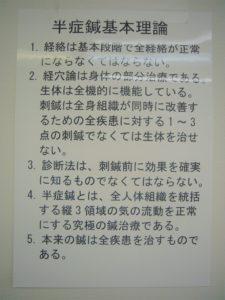 半症鍼基本理論
1. 経絡は基本段階で全経絡が正常
にならなくてはならない。
2. 経穴論は身体の部分治療である。
生体は全機的に機能している。
刺鍼は全身組織が同時に改善す
るための全疾患に対する1～3
点の刺鍼でなくては生体を治せ
ない。
3. 診断法は、刺鍼前に効果を確実
に知るものでなくてはならない。
4. 半症鍼とは、全人体組織を統括
する縦3領域の気の流動を正常
にする究極の鍼治療である。
5. 本来の鍼は全疾患を治すもので
である。